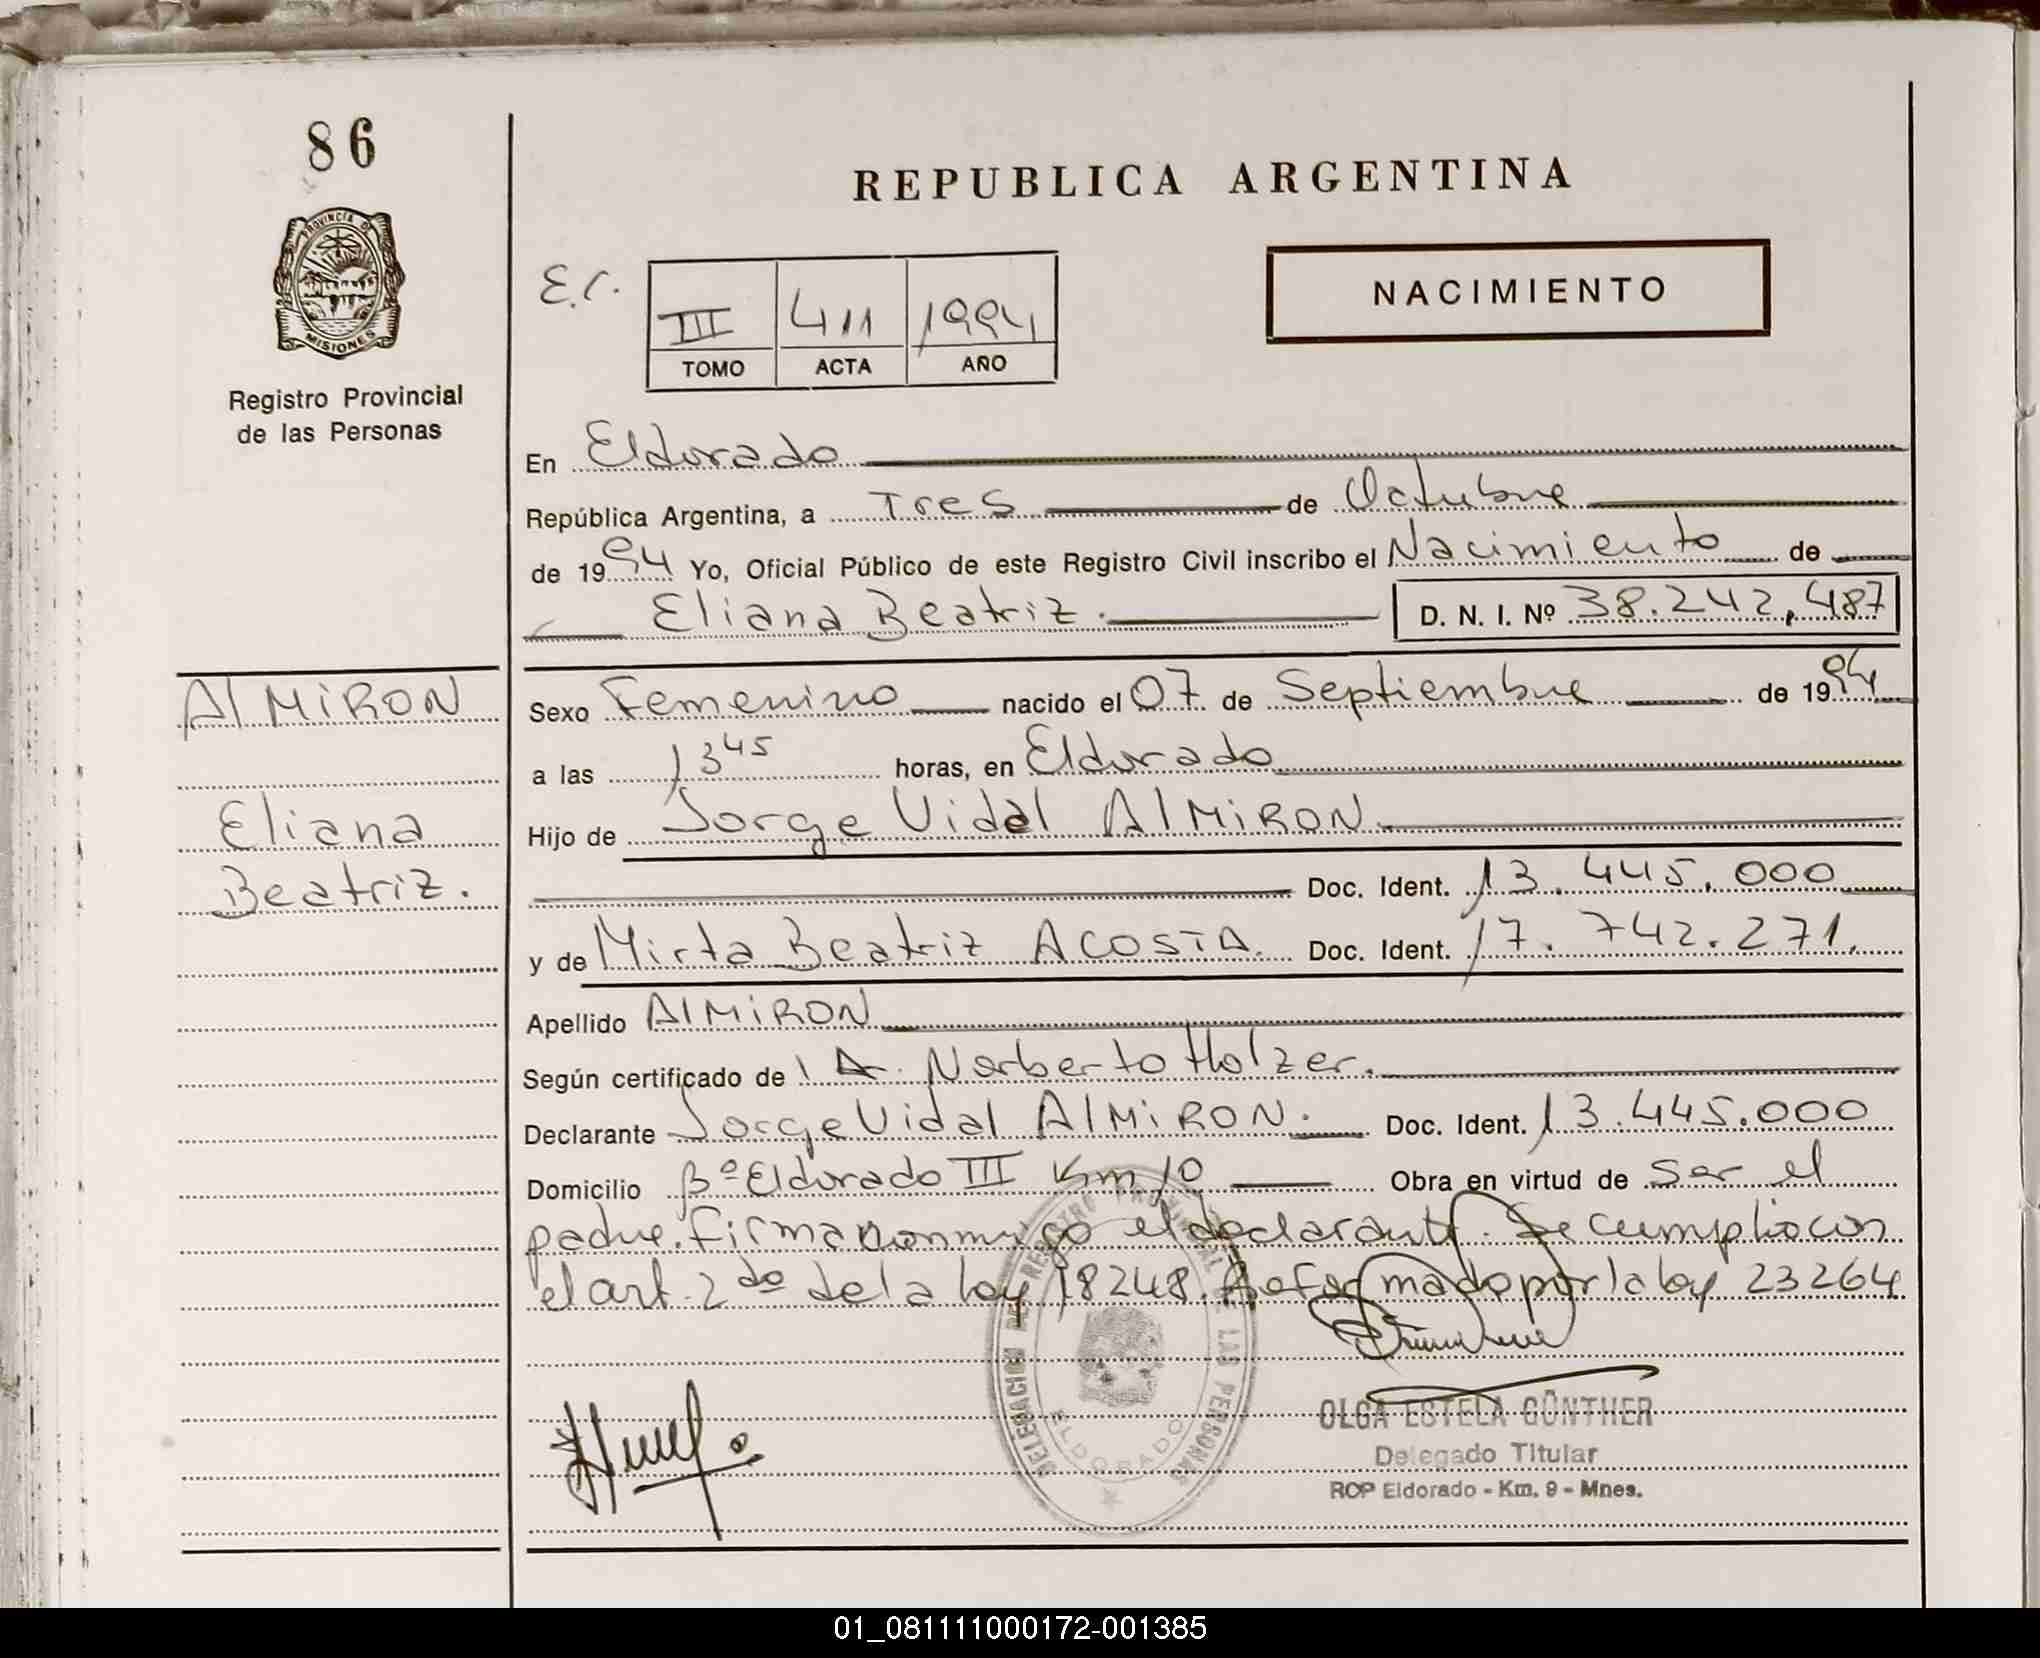 86
PROVINCIA DE
MISIONES
Registro Provincial
de las Personas
REPUBLICA ARGENTINA
E.C.
III 411 1994
TOMO ACTA AÑO
NACIMIENTO
En Eldorado
República Argentina, a Tres de Octubre
de 1994 Yo, Oficial Público de este Registro Civil inscribo el Nacimiento de
Eliana Beatriz. D. N. I. Nº 38.242.487
AlMiRON
Eliana
Beatriz.
Sexo Femenino nacido el 07 de Septiembre de 1994
a las 13 45 horas, en Eldorado
Hijo de Jorge Vidal AlMiRON
Doc. Ident. 13.445.000
y de Mirta Beatriz ACOSTA. Doc. Ident. 17.742.271.
Apellido AlMiRON
Según certificado de l Dr. Norberto Holzer.
Declarante Jorge Vidal AlMiRON. Doc. Ident. 13.445.000
Domicilio Bº Eldorado III Km 10 Obra en virtud de ser el
padre. firmando conmigo el declarante. Se cumplio con
el art. 2do de la ley 18248. Reformado por la ley 23264
DELEGACION DEL REGISTRO PROVINCIAL DE LAS PERSONAS
ELDORADO
OLGA ESTELA GÜNTHER
Delegado Titular
RCP Eldorado - Km. 9 - Mnes.
01_081111000172-001385